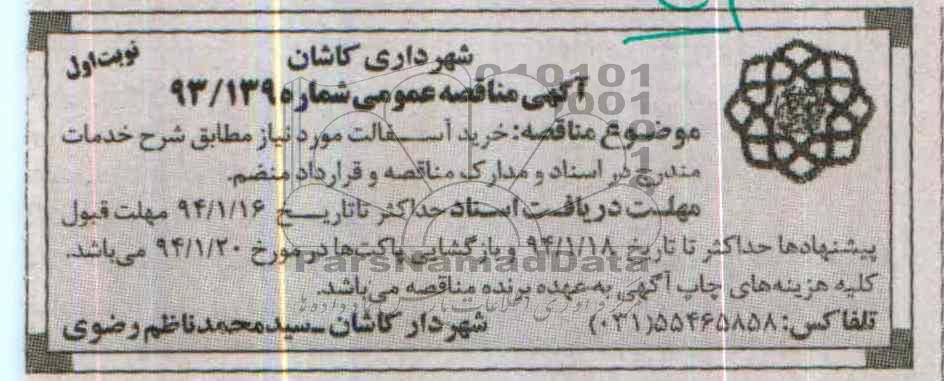 نوبت اول
شهرداری کاشان
آگهی مناقصه عمومی شماره ۹۳/۱۳۹
موضوع مناقصه: خرید آسفالت مورد نیاز مطابق شرح خدمات
مندرج در اسناد و مدارک مناقصه و قرارداد منضم.
مهلت دریافت اسناد حداکثر تاتاریخ ۹۴/۱/۱۶ مهلت قبول
پیشنهادها حداکثر تا تاریخ ۹۴/۱/۱۸ و بازگشایی پاکت‌ها در مورخ ۹۴/۱/۲۰ می‌باشد.
کلیه هزینه‌های چاپ آگهی به عهده برنده مناقصه می‌باشد.
تلفاکس: ۵۵۴۶۵۸۵۸(۰۳۱)
شهردار کاشان ـ سیدمحمدناظم رضوی
ParsNamadData